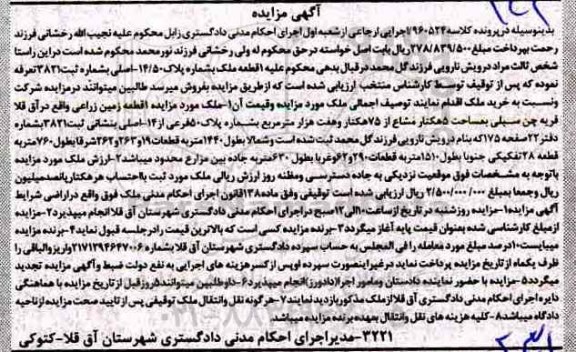 آگهی مزایده
بدینوسیله در پرونده کلاسه ۹۶۰۵۲۴ اجرایی ارجاعی از شعبه اول اجرای احکام مدنی دادگستری زابل محکوم علیه نجیب الله رخشانی فرزند
رحمت بپرداخت مبلغ ۲۷۸/۸۳۹/۵۰۰ ریال بابت اصل خواسته در حق محکوم له ولی رخشانی فرزند نورمحمد محکوم شده است در این راستا
شخص ثالث مراد درویش ناروبی فرزند گل محمد در قبال بدهی محکوم علیه ۱ قطعه ملک بشماره پلاک ۱۴/۵۰-اصلی بشماره ثبت ۳۸۲۱ تعرفه
نموده که پس از توقیف توسط کارشناس منتخب ارزیابی شده است که از طریق مزایده بفروش میرسد طالبین میتوانند در مزایده شرکت
ونسبت به خرید ملک اقدام نمایند توصیف اجمالی ملک مورد مزایده وقیمت آن ۱-ملک مورد مزایده ۱ قطعه زمین زراعی واقع در آق قلا
قریه چن سبلی بمساحت ۵ هکتار مشاع از ۷۵ هکتار وهفت هزار مترمربع بشماره پلاک ۵۰ فرعی از ۱۴-اصلی بنشانی ثبت ۳۸۲۱ بشماره
دفتر ۲۲ صفحه ۱۷۵ که بنام درویش ناروبی فرزند گل محمد ثبت شده است وشمالا بطول ۱۴۴۰ متر به قطعات ۱۹و۲۶۳و۲۶۲ شرقا بطول ۷۶۰ متر به
قطعه ۲۸ تفکیکی جنوبا بطول ۱۵۱۰ متر به قطعات ۲۹۰و۶۲ وغربا بطول ۶۳۰ متر به جاده بین مزارع محدود میباشد ۲-ارزش ملک مورد مزایده
باتوجه به مشخصات فوق موقعیت نزدیکی به جاده دسترسی ومظنه روز ارزش ریالی ملک مورد ثبت بااحتساب هر هکتار پانصد میلیون
ریال وجمعا بمبلغ ۲/۵۰۰/۰۰۰/۰۰۰ ریال ارزیابی شده است توقیفی وفق ماده ۱۳۸ قانون اجرای احکام مدنی ملک فوق واقع در اراضی شرایط
آگهی مزایده ۱-مزایده روز شنبه در تاریخ از ساعت ۱۰ الی ۱۲ صبح در اجرای احکام مدنی دادگستری شهرستان آق قلا انجام میپذیرد ۲-مزایده
از مبلغ کارشناسی شده بعنوان قیمت پایه آغاز میگردد ۳-برنده مزایده کسی است که بالاترین قیمت را در جلسه قبول نماید ۴-برنده مزایده
میبایست ۱۰ درصد مبلغ مورد معامله را فی المجلس به حساب سپرده دادگستری شهرستان آق قلا بشماره ۲۱۷۱۲۹۴۶۴۷۰۰۶ واریز والباقی را
ظرف یکماه از تاریخ مزایده پرداخت نماید در غیر اینصورت سپرده او پس از کسر هزینه های اجرایی به نفع دولت ضبط وآگهی مزایده تجدید
میگردد ۵-مزایده با حضور نماینده دادستان ومامور اجرا(دادورز) انجام میپذیرد ۶-داوطلبین میتوانند ۵ روز قبل از تاریخ مزایده با هماهنگی
دایره اجرای احکام مدنی دادگستری آق قلا از ملک مذکور بازدید نمایند ۷-هرگونه نقل وانتقال ملک توقیفی پس از تایید صحت مزایده از ناحیه
دادگاه میباشد ۸-کلیه هزینه های نقل وانتقال بعهده برنده مزایده میباشد
۳۲۲۱-مدیر اجرای احکام مدنی دادگستری شهرستان آق قلا-کتوکی